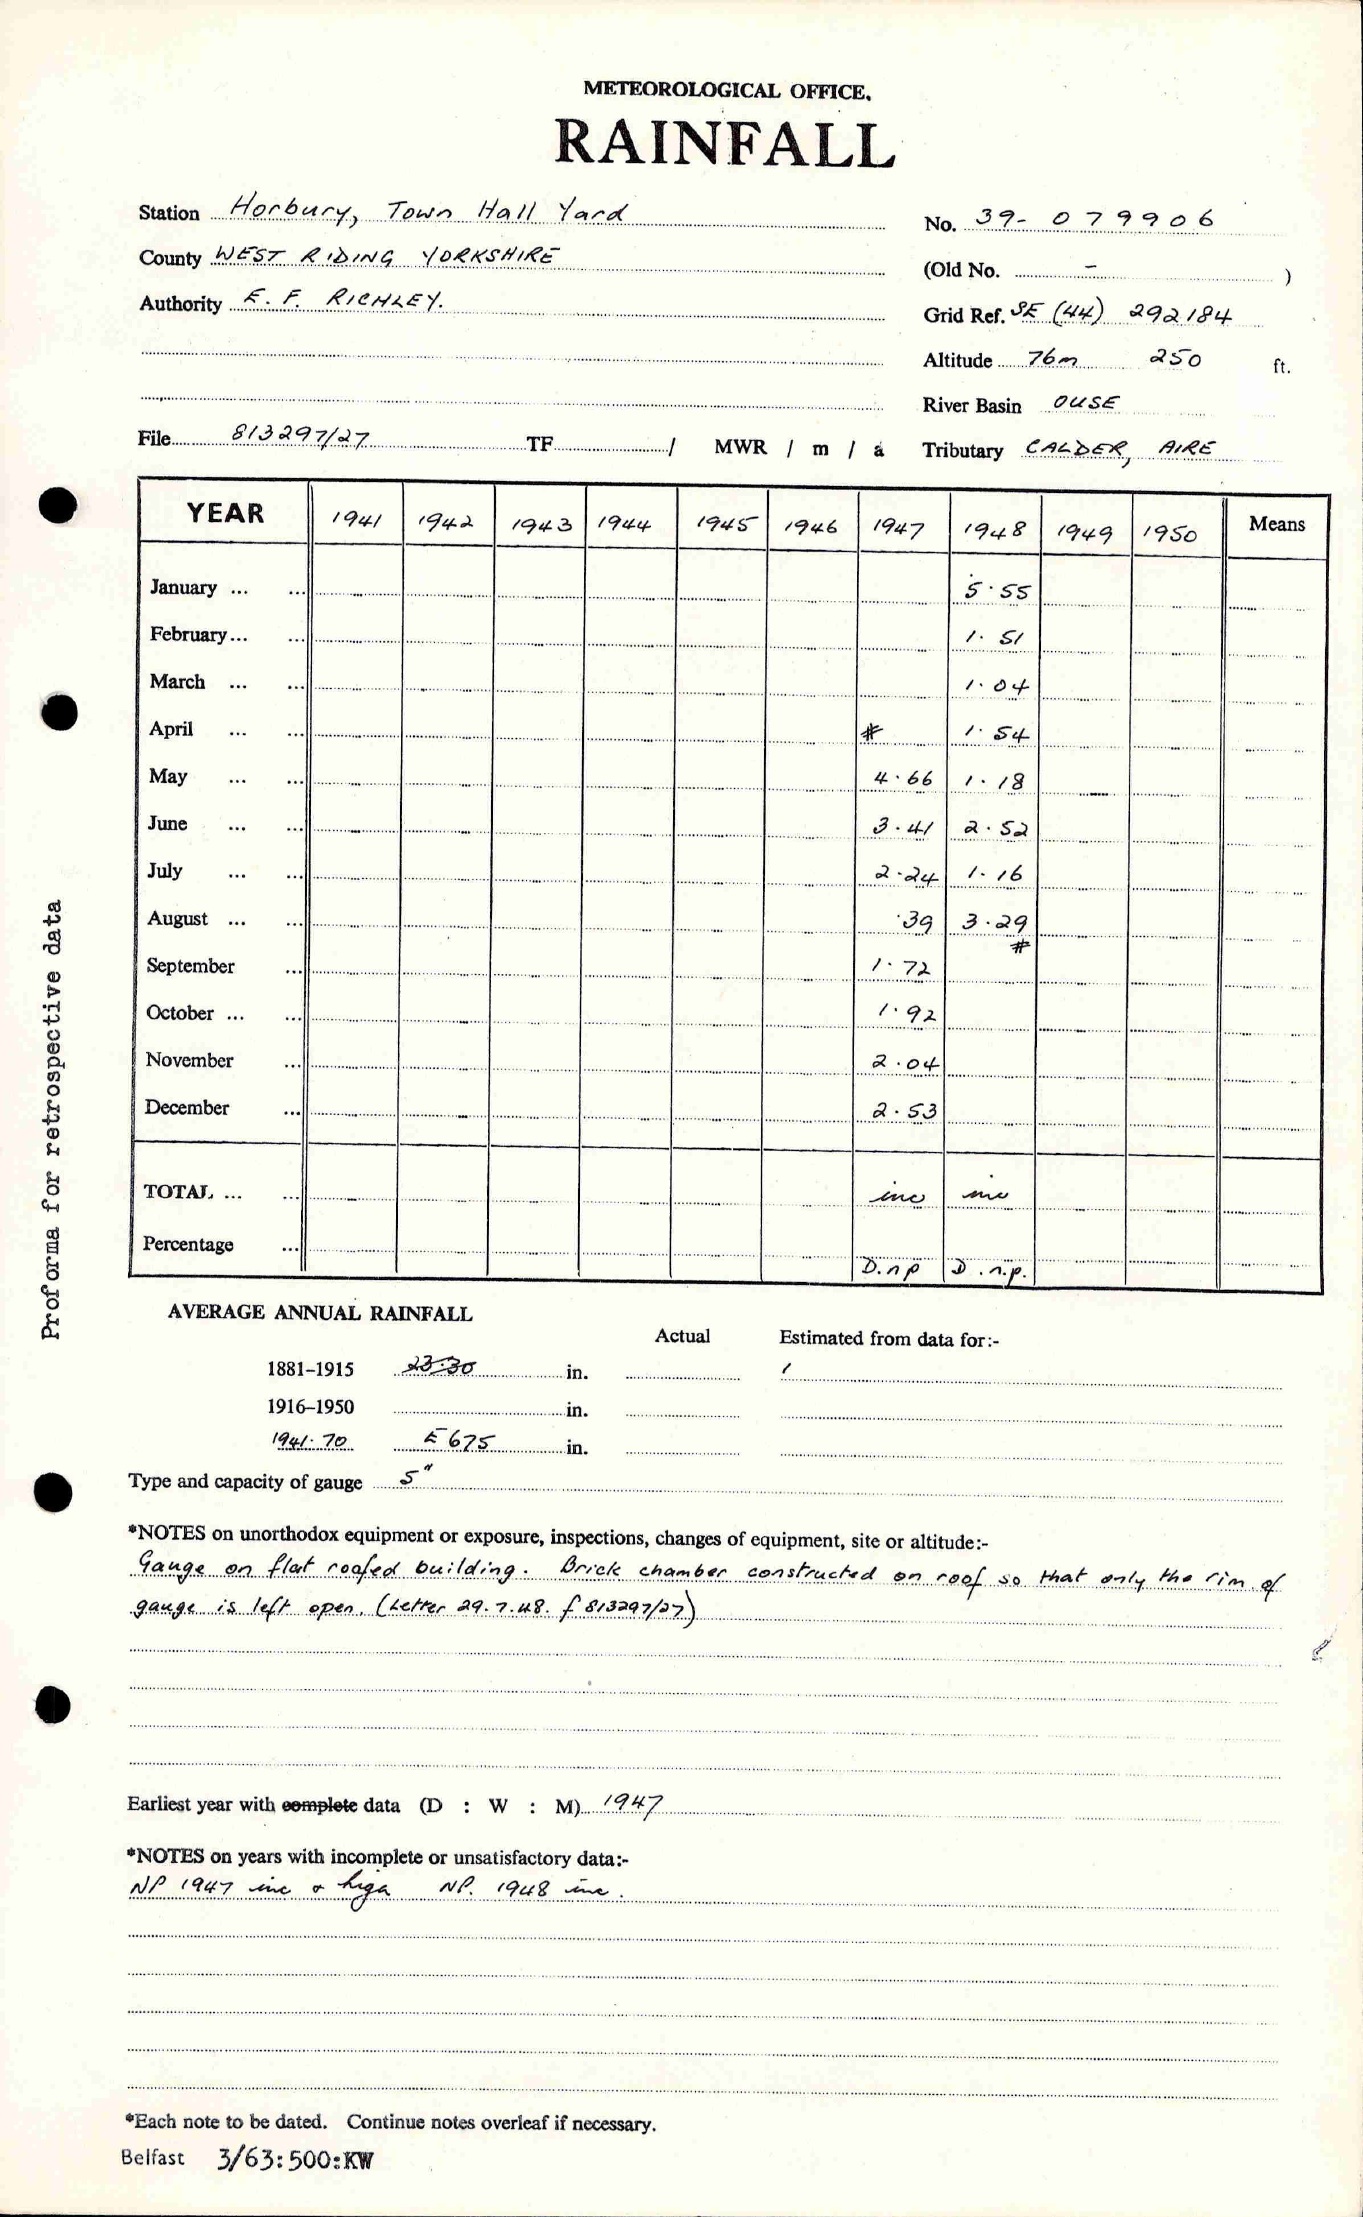 METEOROLOGICAL OFFICE.
RAINFALL
Station Horbury, Town Hall Yard
No. 39- 079906
County WEST RIDING YORKSHIRE
(Old No. - )
Authority E. F. RICHLEY.
Grid Ref. SE (44) 292184
Altitude 76m 250 ft.
River Basin OUSE
File 813297/27 TF / MWR / m / a Tributary CALDER, AIRE
YEAR 1941 1942 1943 1944 1945 1946 1947 1948 1949 1950 Means
January ... ... 5.55
February... ... 1.51
March ... ... 1.04
April ... ... # 1.54
May ... ... 4.66 1.18
June ... ... 3.41 2.52
July ... ... 2.24 1.16
August ... ... .39 3.29
September ... 1.72 #
October ... ... 1.92
November ... 2.04
December ... 2.53
TOTAL ... ... inc inc
Percentage ...
D.n.p D.n.p.
AVERAGE ANNUAL RAINFALL
Actual Estimated from data for:-
1881-1915 23.30 in.
1916-1950 in.
1941-70 E 675 in.
Type and capacity of gauge 5"
*NOTES on unorthodox equipment or exposure, inspections, changes of equipment, site or altitude:-
Gauge on flat roofed building. Brick chamber constructed on roof so that only the rim of
gauge is left open. (Letter 29.7.48. f 813297/27)
Earliest year with complete data (D : W : M) 1947
*NOTES on years with incomplete or unsatisfactory data:-
NP 1947 inc & NP. 1948 inc.
*Each note to be dated. Continue notes overleaf if necessary.
Belfast 3/63:500:KW
Proforma for retrospective data